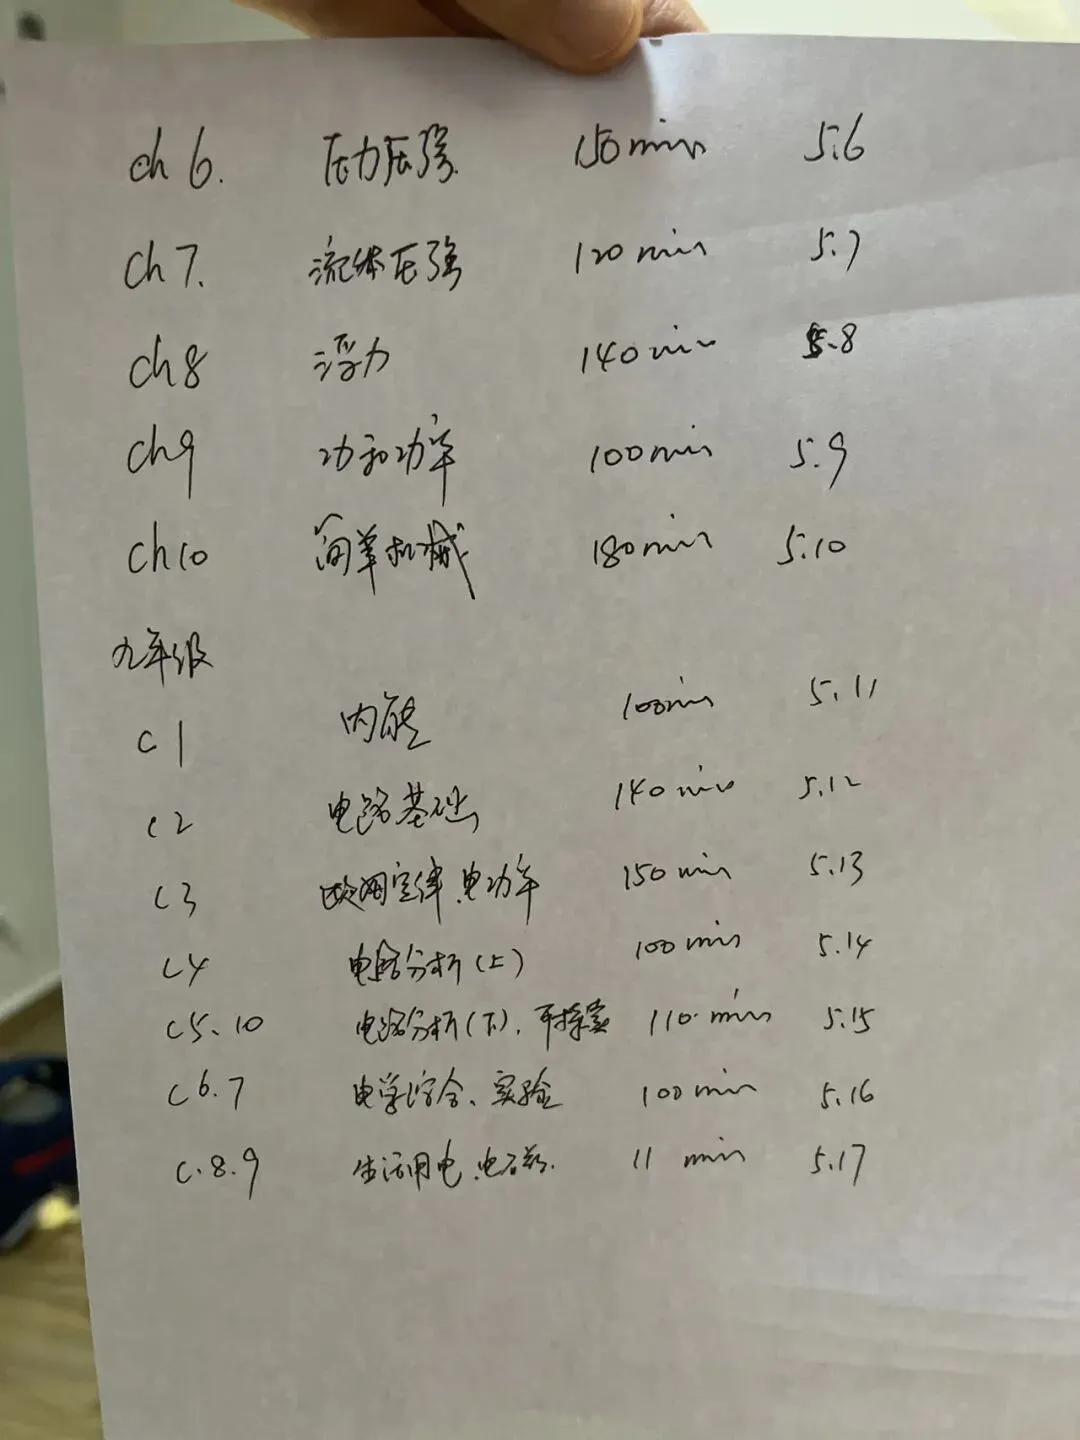 ch 6. 压力压强. 150min 5.6
ch7. 流体压强 120min 5.7
ch8 浮力 140min 5.8
ch9 功和功率 100min 5.9
ch10 简单机械 180min 5.10
九年级
c1 内能 100min 5.11
c2 电路基础 140min 5.12
c3 欧姆定律、电功率 150min 5.13
c4 电路分析(上) 100min 5.14
c5、10 电路分析(下)、 110min 5.15
c6.7 电学综合、实验 100min 5.16
c.8.9 生活用电、电磁. 11 min 5.17